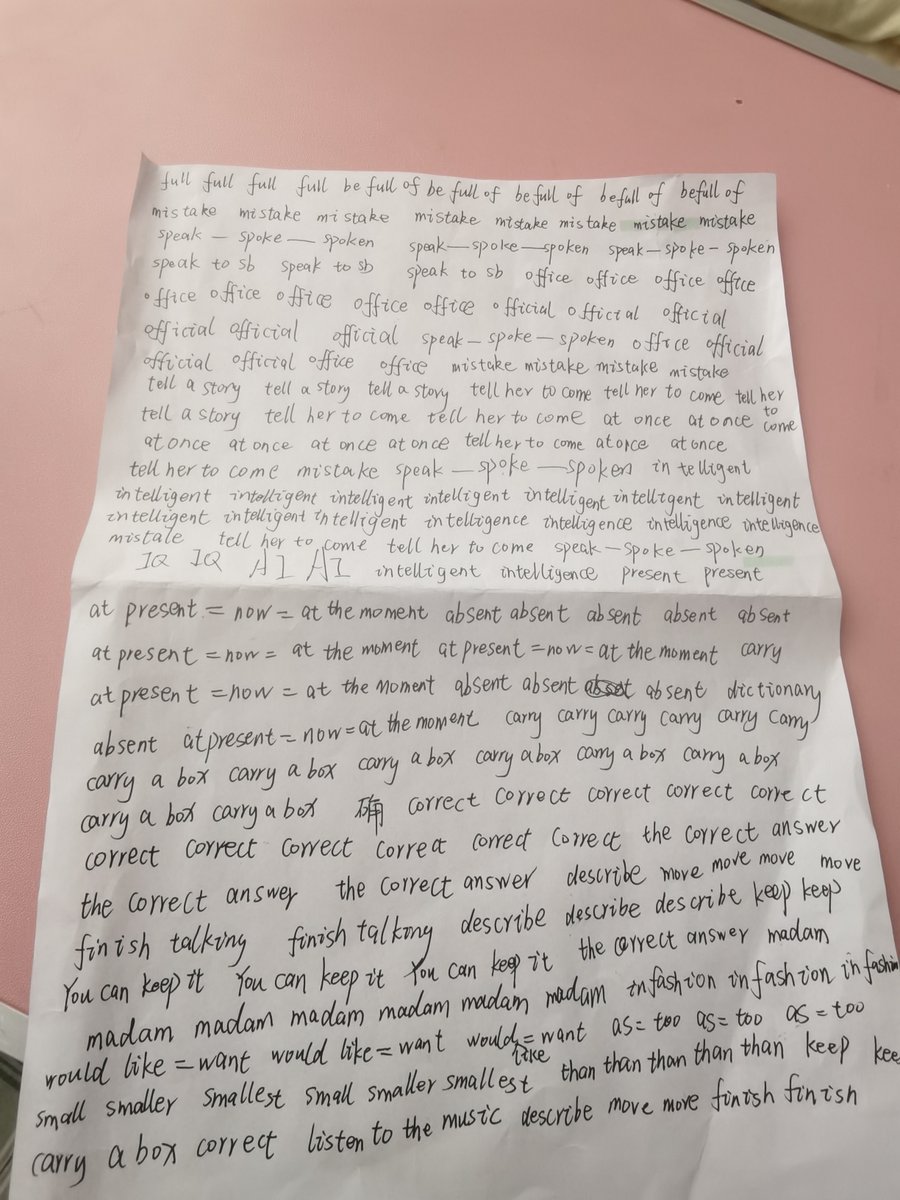 full full full full be full of be full of be full of be full of be full of
mistake mistake mistake mistake mistake mistake mistake mistake
speak — spoke — spoken speak — spoke — spoken speak — spoke — spoken
speak to sb speak to sb speak to sb office office office office
office office office office office official official official
official official official speak — spoke — spoken office official
official official office office mistake mistake mistake mistake
tell a story tell a story tell a story tell her to come tell her to come tell her to come
tell a story tell her to come tell her to come at once at once
at once at once at once at once tell her to come at once at once
tell her to come mistake speak — spoke — spoken intelligent
intelligent intelligent intelligent intelligent intelligent intelligent intelligent
intelligent intelligent intelligent intelligence intelligence intelligence intelligence
mistake tell her to come tell her to come speak — spoke — spoken
IQ IQ AI AI intelligent intelligence present present
at present = now = at the moment absent absent absent absent absent
at present = now = at the moment at present = now = at the moment carry
at present = now = at the moment absent absent absent dictionary
absent at present = now = at the moment carry carry carry carry carry carry
carry a box carry a box carry a box carry a box carry a box carry a box
carry a box carry a box 确 correct correct correct correct correct
correct correct correct correct correct correct the correct answer
the correct answer the correct answer describe move move move move
finish talking finish talking describe describe describe keep keep
You can keep it You can keep it You can keep it the correct answer madam
madam madam madam madam madam madam in fashion in fashion in fashion
would like = want would like = want would like = want as = too as = too as = too
small smaller smallest small smaller smallest than than than than than keep kee
carry a box correct listen to the music describe move move finish finish